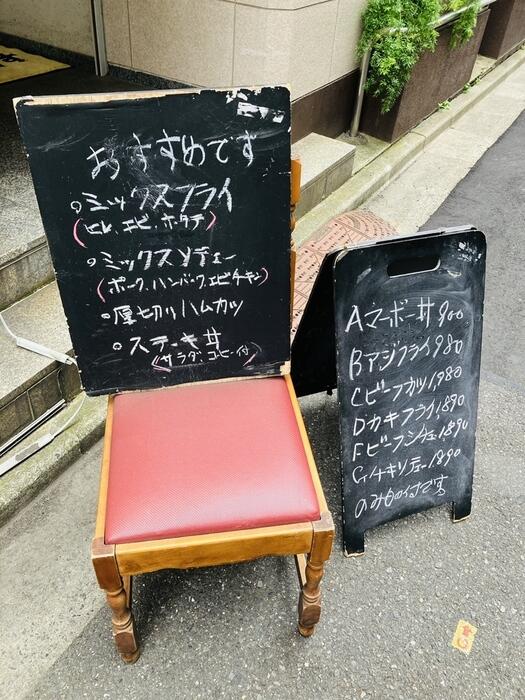 おすすめです
○ミックスフライ
(ヒレ、エビ、ホタテ)
○ミックスソテー
(ポーク、ハンバーグ、エビチキン)
○厚切りハムカツ
○ステーキ丼
(サラダ、コーヒー付)
Aマーボー丼900
Bアジフライ980
Cビーフカツ1,980
Dカキフライ1,890
Fビーフシチュー1,890
Gチキソテー1890
のみもの付です